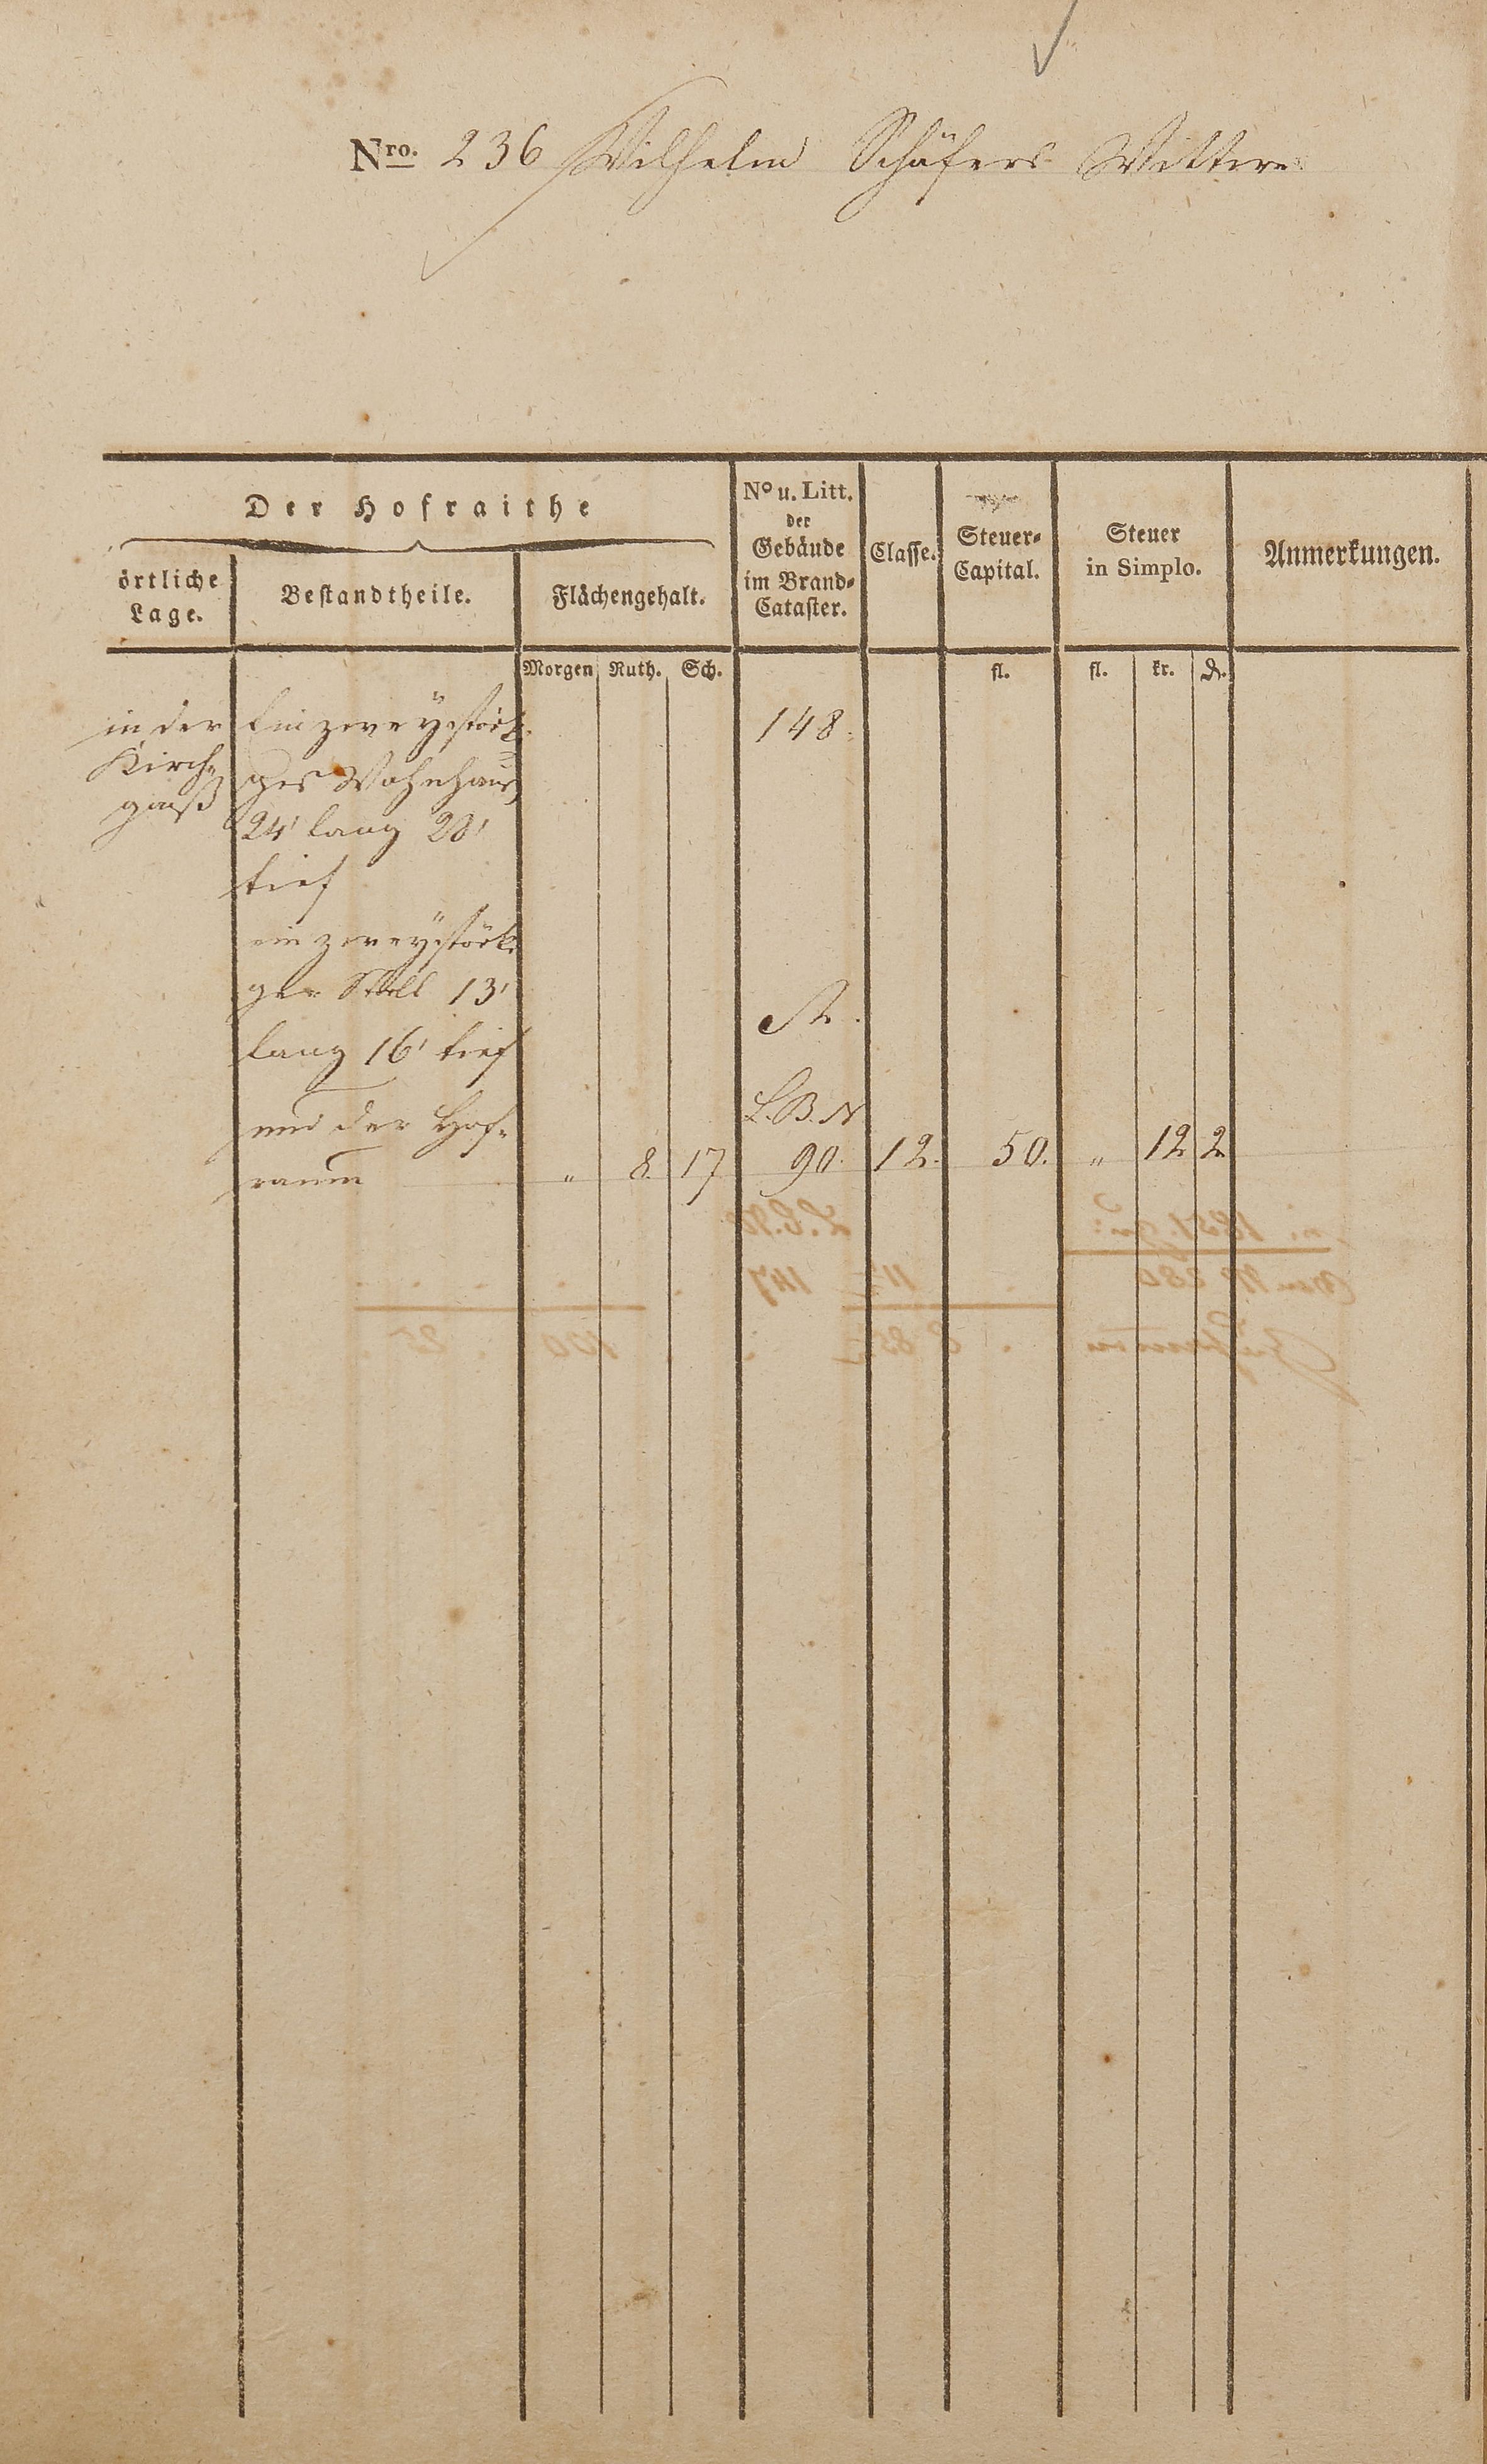 Nro. 236 Wilhelm Schäfers Wittwe
Der Hofraithe
örtliche Lage.
Bestandtheile.
Flächengehalt.
No u. Litt. der Gebäude im Brand-Cataster.
Classe.
Steuer-Capital.
Steuer in Simplo.
Anmerkungen.
Morgen Ruth. Sch. fl. fl. kr. d.
in der Ein zweystöck- 148.
Kirch- ges Wohnhaus,
gaß 24' lang 20'
tief
ein zweystöcki-
ger Stall 13'
A.
lang 16' tief
L.B.N
und der Hof-
raum " 8. 17 90. 12. 50. " 12 2